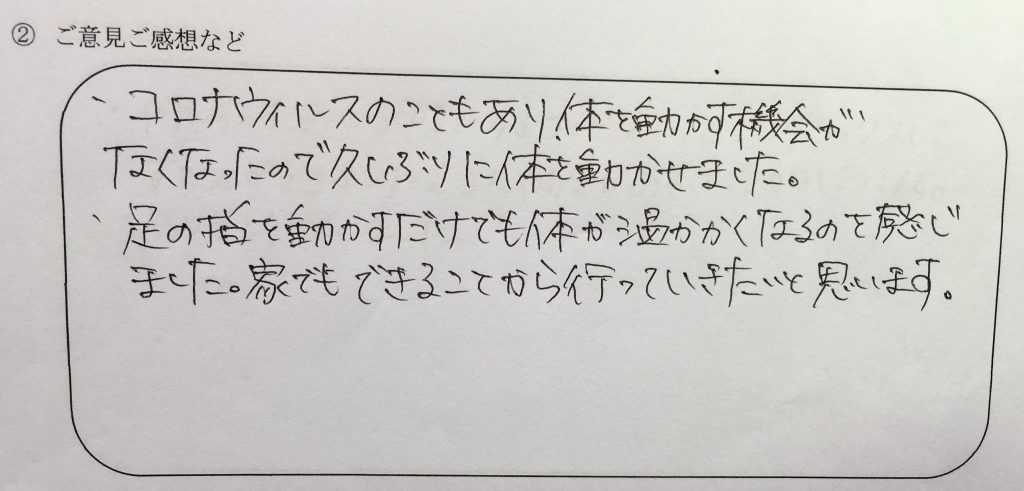 ② ご意見ご感想など
、コロナウィルスのこともあり、体を動かす機会が
なくなったので久しぶりに体を動かせました。
、足の指を動かすだけでも体が温かくなるのを感じ
ました。家でもできることから行っていきたいと思います。